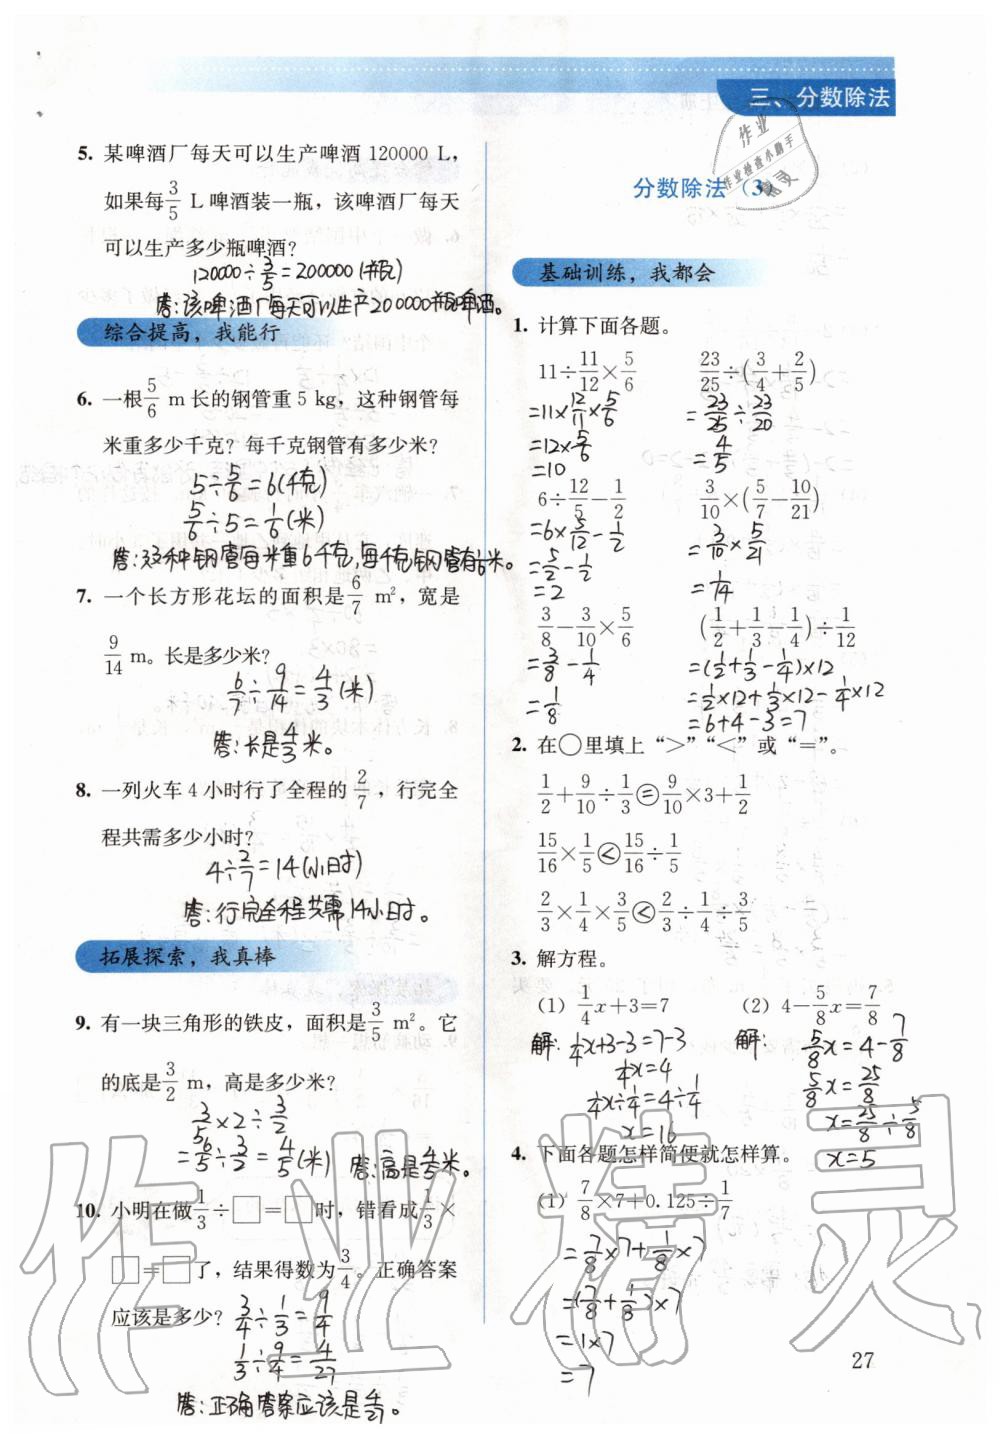 三、分数除法
5. 某啤酒厂每天可以生产啤酒 120000 L，
如果每 3/5 L 啤酒装一瓶，该啤酒厂每天
可以生产多少瓶啤酒？
120000÷3/5=200000(瓶)
答：该啤酒厂每天可以生产200000瓶啤酒。
综合提高，我能行
6. 一根 5/6 m 长的钢管重 5 kg，这种钢管每
米重多少千克？每千克钢管有多少米？
5÷5/6=6(千克)
5/6÷5=1/6(米)
答：这种钢管每米重6千克,每千克钢管有1/6米。
7. 一个长方形花坛的面积是 6/7 m²，宽是
9/14 m。长是多少米？
6/7÷9/14=4/3(米)
答：长是4/3米。
8. 一列火车 4 小时行了全程的 2/7，行完全
程共需多少小时？
4÷2/7=14(小时)
答：行完全程共需14小时。
拓展探索，我真棒
9. 有一块三角形的铁皮，面积是 3/5 m²。它
的底是 3/2 m，高是多少米？
3/5×2÷3/2
=6/5÷3/2=4/5(米)
答：高是4/5米。
10. 小明在做 1/3÷□=□时，错看成 1/3×
□=□了，结果得数为 3/4。正确答案
应该是多少？
3/4÷1/3=9/4
1/3÷9/4=4/27
答：正确答案应该是4/27。
分数除法（3）
作业
作业检查小助手
基础训练，我都会
1. 计算下面各题。
11÷11/12×5/6
=11×12/11×5/6
=12×5/6
=10
23/25÷(3/4+2/5)
=23/25÷23/20
=4/5
6÷12/5-1/2
=6×5/12-1/2
=5/2-1/2
=2
3/10×(5/7-10/21)
=3/10×5/21
=1/14
3/8-3/10×5/6
=3/8-1/4
=1/8
(1/2+1/3-1/4)÷1/12
=(1/2+1/3-1/4)×12
=1/2×12+1/3×12-1/4×12
=6+4-3=7
2. 在○里填上“>”“<”或“=”。
1/2+9/10÷1/3 = 9/10×3+1/2
15/16×1/5 < 15/16÷1/5
2/3×1/4×3/5 < 2/3÷1/4÷3/5
3. 解方程。
(1) 1/4x+3=7
解：1/4x+3-3=7-3
1/4x=4
1/4x÷1/4=4÷1/4
x=16
(2) 4-5/8x=7/8
解：5/8x=4-7/8
5/8x=25/8
x=25/8÷5/8
x=5
4. 下面各题怎样简便就怎样算。
(1) 7/8×7+0.125÷1/7
=7/8×7+1/8×7
=(7/8+1/8)×7
=1×7
=7
27
作业精灵